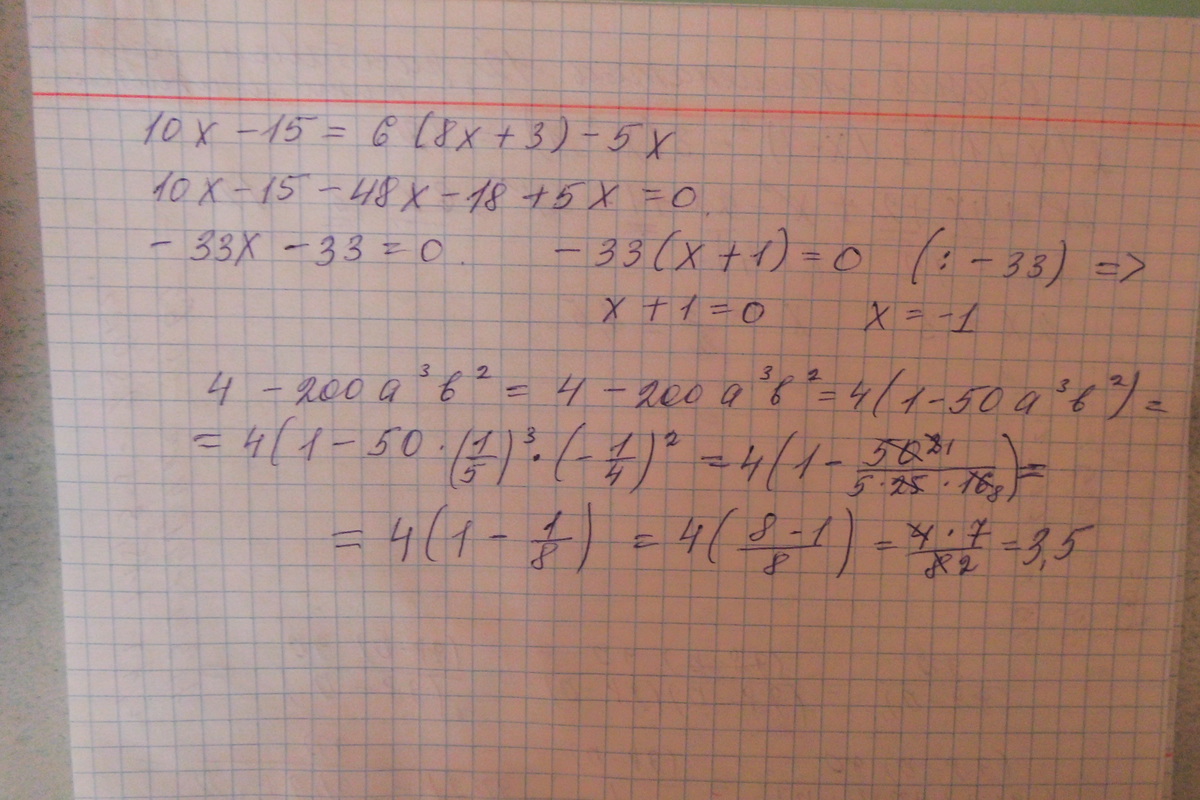 10x - 15 = 6 (8x + 3) - 5x
10x - 15 - 48x - 18 + 5x = 0.
- 33x - 33 = 0. - 33 (x + 1) = 0 (: - 33) =>
x + 1 = 0 x = -1
4 - 200 a³ b² = 4 - 200 a³ b² = 4 (1 - 50 a³ b²) =
= 4 (1 - 50 · (1/5)³ · (- 1/4)² = 4 (1 - 50 2 1 / 5 · 25 · 16 8) =
= 4 (1 - 1/8) = 4 (8 - 1 / 8) = 4 · 7 / 8 2 = 3,5